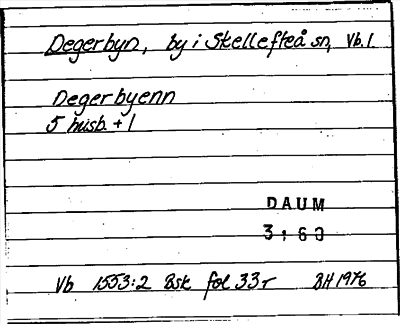 Degerbyn, by i Skellefteå sn, Vb. l.
Degerbyenn
5 husb. + 1
DAUM
3:60
Vb 1553:2 Bsk fol 33r BH 1976